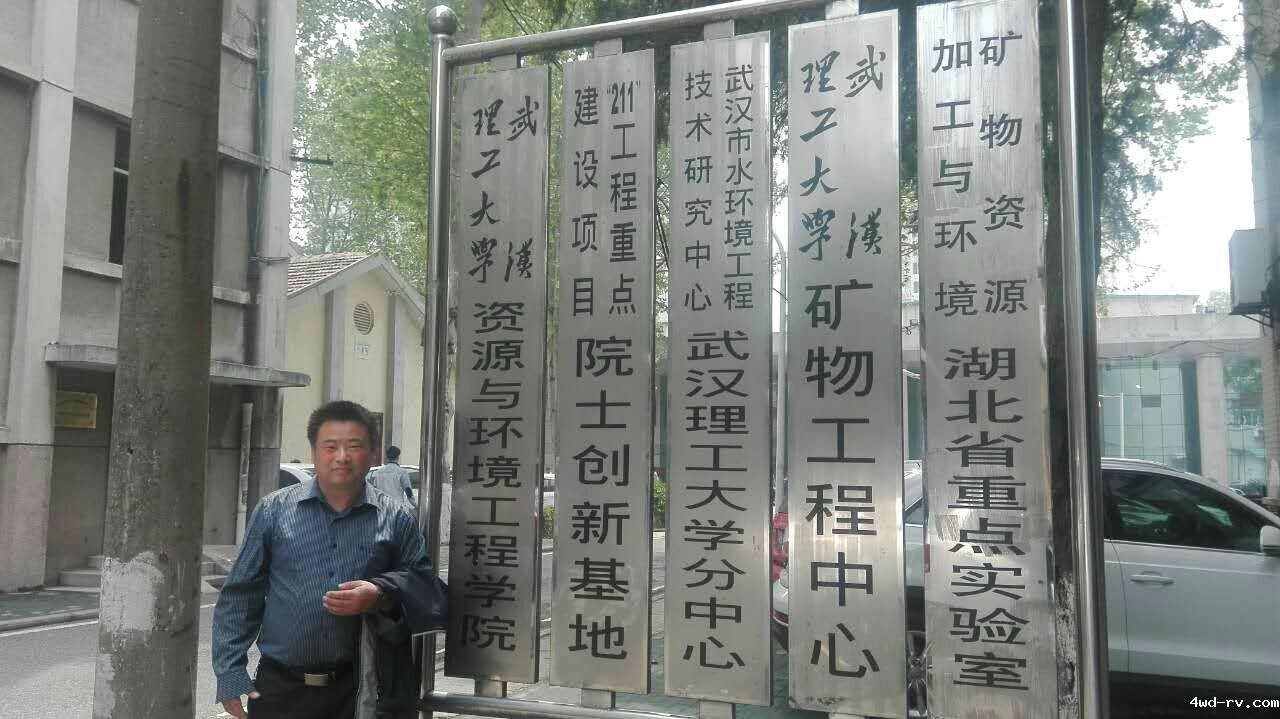 武漢
理工大学
资源与环境工程学院
"211"工程重点
建设项目
院士创新基地
武汉市水环境工程
技术研究中心
武汉理工大学分中心
武漢
理工大学
矿物工程中心
矿物资源
加工与环境
湖北省重点实验室
4wd-rv.com